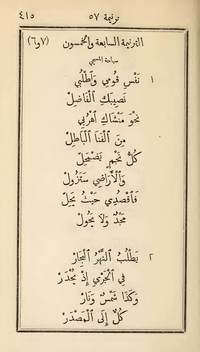 ترنيمة ٥٧ ٤١٥
الترنيمة السابعة والخمسون (٧ و٦)
سياحة المسيحي
١ نَفْسِ قُومِي وَاطْلُبِي
نَصِيبَكِ الْفَاضِلْ
نَحْوَ مَنْشَاكِ اهْرُبِي
مِنَ الْفَنَا الْبَاطِلْ
كُلُّ نَجْمٍ يَضْمَحِلّْ
وَالْأَرَاضِي سَتَزُولْ
فَاقْصُدِي حَيْثُ يَحِلّْ
مَجْدٌ وَلَا يَحُولْ
٢ يَطْلُبُ النَّهْرُ الْبِحَارْ
فِي الْمَجْرَى إِذْ يُحْدَرْ
وَكَذَا شَمْسٌ وَنَارْ
كُلٌّ إِلَى الْمَصْدَرْ